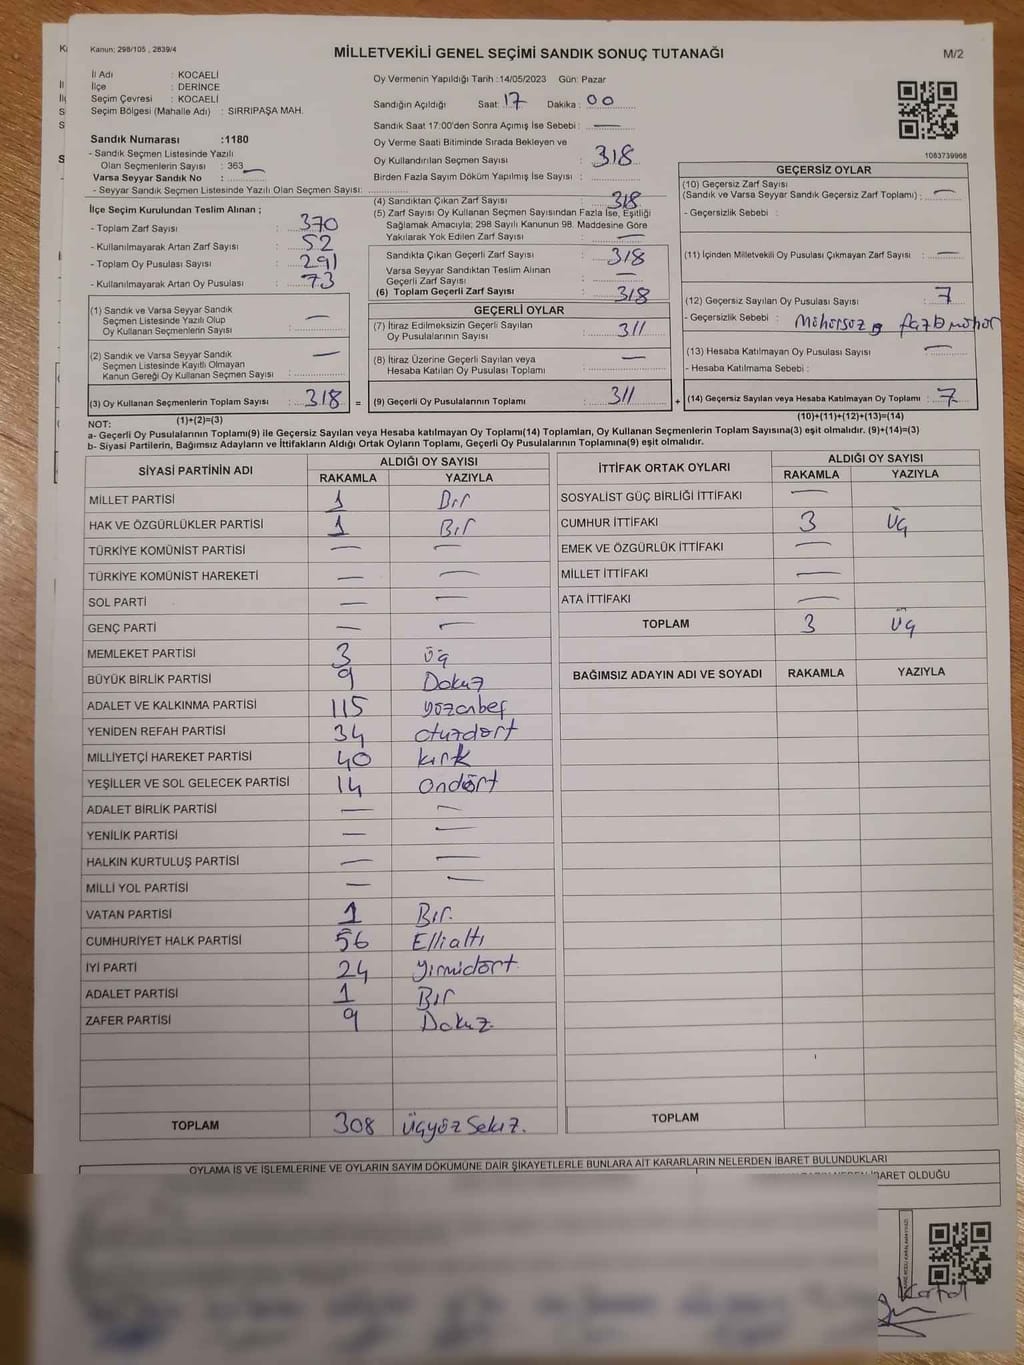 Kanun; 298/105 , 2839/4
MİLLETVEKİLİ GENEL SEÇİMİ SANDIK SONUÇ TUTANAĞI
M/2
İl Adı : KOCAELİ
İlçe : DERİNCE
Seçim Çevresi : KOCAELİ
Seçim Bölgesi (Mahalle Adı) : SIRRIPAŞA MAH.
Sandık Numarası :1180
- Sandık Seçmen Listesinde Yazılı
Olan Seçmenlerin Sayısı : 363
Varsa Seyyar Sandık No : —
- Seyyar Sandık Seçmen Listesinde Yazılı Olan Seçmen Sayısı:
Oy Vermenin Yapıldığı Tarih :14/05/2023 Gün: Pazar
Sandığın Açıldığı Saat: 17 Dakika : 00
Sandık Saat 17:00'den Sonra Açımış İse Sebebi : —
Oy Verme Saati Bitiminde Sırada Bekleyen ve
Oy Kullandırılan Seçmen Sayısı : 318
Birden Fazla Sayım Döküm Yapılmış İse Sayısı :
1083739968
İlçe Seçim Kurulundan Teslim Alınan ;
- Toplam Zarf Sayısı : 370
- Kullanılmayarak Artan Zarf Sayısı : 52
- Toplam Oy Pusulası Sayısı : 291
- Kullanılmayarak Artan Oy Pusulası : 73
(1) Sandık ve Varsa Seyyar Sandık
Seçmen Listesinde Yazılı Olup
Oy Kullanan Seçmenlerin Sayısı : —
(2) Sandık ve Varsa Seyyar Sandık
Seçmen Listesinde Kayıtlı Olmayan
Kanun Gereği Oy Kullanan Seçmen Sayısı : —
(3) Oy Kullanan Seçmenlerin Toplam Sayısı : 318 =
(1)+(2)=(3)
(4) Sandıktan Çıkan Zarf Sayısı : 318
(5) Zarf Sayısı Oy Kullanan Seçmen Sayısından Fazla İse, Eşitliği
Sağlamak Amacıyla; 298 Sayılı Kanunun 98. Maddesine Göre
Yakılarak Yok Edilen Zarf Sayısı : —
Sandıkta Çıkan Geçerli Zarf Sayısı : 318
Varsa Seyyar Sandıktan Teslim Alınan
Geçerli Zarf Sayısı : —
(6) Toplam Geçerli Zarf Sayısı : 318
GEÇERLİ OYLAR
(7) İtiraz Edilmeksizin Geçerli Sayılan
Oy Pusulalarının Sayısı : 311
(8) İtiraz Üzerine Geçerli Sayılan veya
Hesaba Katılan Oy Pusulası Toplamı : —
(9) Geçerli Oy Pusulalarının Toplamı : 311 +
GEÇERSİZ OYLAR
(10) Geçersiz Zarf Sayısı
(Sandık ve Varsa Seyyar Sandık Geçersiz Zarf Toplamı) : —
- Geçersizlik Sebebi :
(11) İçinden Milletvekili Oy Pusulası Çıkmayan Zarf Sayısı : —
(12) Geçersiz Sayılan Oy Pusulası Sayısı : 7
- Geçersizlik Sebebi : Mühürsüz fazla mühür
(13) Hesaba Katılmayan Oy Pusulası Sayısı : —
- Hesaba Katılmama Sebebi :
(14) Geçersiz Sayılan veya Hesaba Katılmayan Oy Toplamı : 7
(10)+(11)+(12)+(13)=(14)
NOT:
a- Geçerli Oy Pusulalarının Toplamı(9) ile Geçersiz Sayılan veya Hesaba katılmayan Oy Toplamı(14) Toplamları, Oy Kullanan Seçmenlerin Toplam Sayısına(3) eşit olmalıdır. (9)+(14)=(3)
b- Siyasi Partilerin, Bağımsız Adayların ve İttifakların Aldığı Ortak Oyların Toplamı, Geçerli Oy Pusulalarının Toplamına(9) eşit olmalıdır.
SİYASİ PARTİNİN ADI ALDIĞI OY SAYISI
RAKAMLA YAZIYLA
MİLLET PARTİSİ 1 Bir
HAK VE ÖZGÜRLÜKLER PARTİSİ 1 Bir
TÜRKİYE KOMÜNİST PARTİSİ — —
TÜRKİYE KOMÜNİST HAREKETİ — —
SOL PARTİ — —
GENÇ PARTİ — —
MEMLEKET PARTİSİ 3 üç
BÜYÜK BİRLİK PARTİSİ 9 Dokuz
ADALET VE KALKINMA PARTİSİ 115 yüzonbeş
YENİDEN REFAH PARTİSİ 34 otuzdört
MİLLİYETÇİ HAREKET PARTİSİ 40 kırk
YEŞİLLER VE SOL GELECEK PARTİSİ 14 ondört
ADALET BİRLİK PARTİSİ — —
YENİLİK PARTİSİ — —
HALKIN KURTULUŞ PARTİSİ — —
MİLLİ YOL PARTİSİ — —
VATAN PARTİSİ 1 Bir.
CUMHURİYET HALK PARTİSİ 56 Ellialtı
İYİ PARTİ 24 yirmidört
ADALET PARTİSİ 1 Bir
ZAFER PARTİSİ 9 Dokuz
TOPLAM 308 üçyüzSekiz.
İTTİFAK ORTAK OYLARI ALDIĞI OY SAYISI
RAKAMLA YAZIYLA
SOSYALİST GÜÇ BİRLİĞİ İTTİFAKI —
CUMHUR İTTİFAKI 3 üç
EMEK VE ÖZGÜRLÜK İTTİFAKI —
MİLLET İTTİFAKI —
ATA İTTİFAKI —
TOPLAM 3 üç
BAĞIMSIZ ADAYIN ADI VE SOYADI RAKAMLA YAZIYLA
TOPLAM
OYLAMA İŞ VE İŞLEMLERİNE VE OYLARIN SAYIM DÖKÜMÜNE DAİR ŞİKAYETLERLE BUNLARA AİT KARARLARIN NELERDEN İBARET BULUNDUKLARI
NEDEN İBARET OLDUĞU